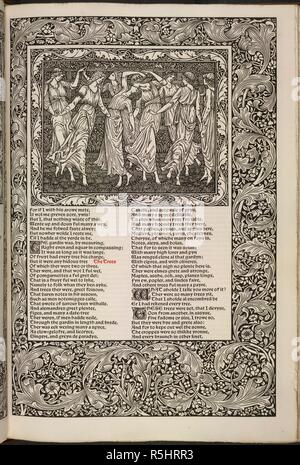 For if I with his arowe mete,
It wol me greven sore, ywis!
But I, that nothing wiste of this,
Wente up and doun ful many a wey,
And he me folwed faste alwey;
But nowher wolde I reste me,
Til I hadde al the yerde in be.
The gardin was, by mesuring,
Right even and squar in compassing;
It was as long as it was large.
Of fruit hadde every tree his charge,
But it were any hidous tree The Trees
Of which ther were two or three.
Ther were, and that wot I ful wel,
Of pomgarnettes a ful gret del;
That is a fruit ful wel to lyke,
Namely to folk whan they ben syke.
And trees ther were, greet foisoun,
That baren notes in hir sesoun,
Such as men notemigges calle,
That swote of savour been withalle.
And alemandres greet plentee,
Figes, and many a date-tree
Ther weren, if men hadde nede,
Through the gardin in length and brede.
Ther was eek wexing many a spyce,
As clow-gelofre, and licoryce,
Gingere, and greyn de paradys,
Canelle, and setewale of prys,
And many a spyce delitable,
To eten whan men ryse fro table.
And many hoomly trees ther were,
That peches, coynes, and apples bere,
Medlers, ploumes, peres, chesteynes,
Cheryse, of whiche many on fayn is,
Notes, aleys, and bolas,
That for to seen it was solas;
With many high lorer and pyn
Was renged clene al that gardyn;
With cipres, and with oliveres,
Of which that nigh no plente here is.
Ther were elmes grete and stronge,
Maples, asshe, ook, asp, planes longe,
Fyn ew, popler, and lindes faire,
And othere trees ful many a payre.
What sholde I telle you more of it?
Ther were so many trees yit,
That I sholde al encombred be
Er I had rekened every tree.
These trees were set, that I devyse,
Oon from another, in assyse,
Five fadome or sixe, I trowe so,
But they were hye and grete also:
And for to kepe out wel the sonne,
The croppes were so thikke yronne,
And every braunch in other knet,
alamy
Image ID: R5HRR3
www.alamy.com